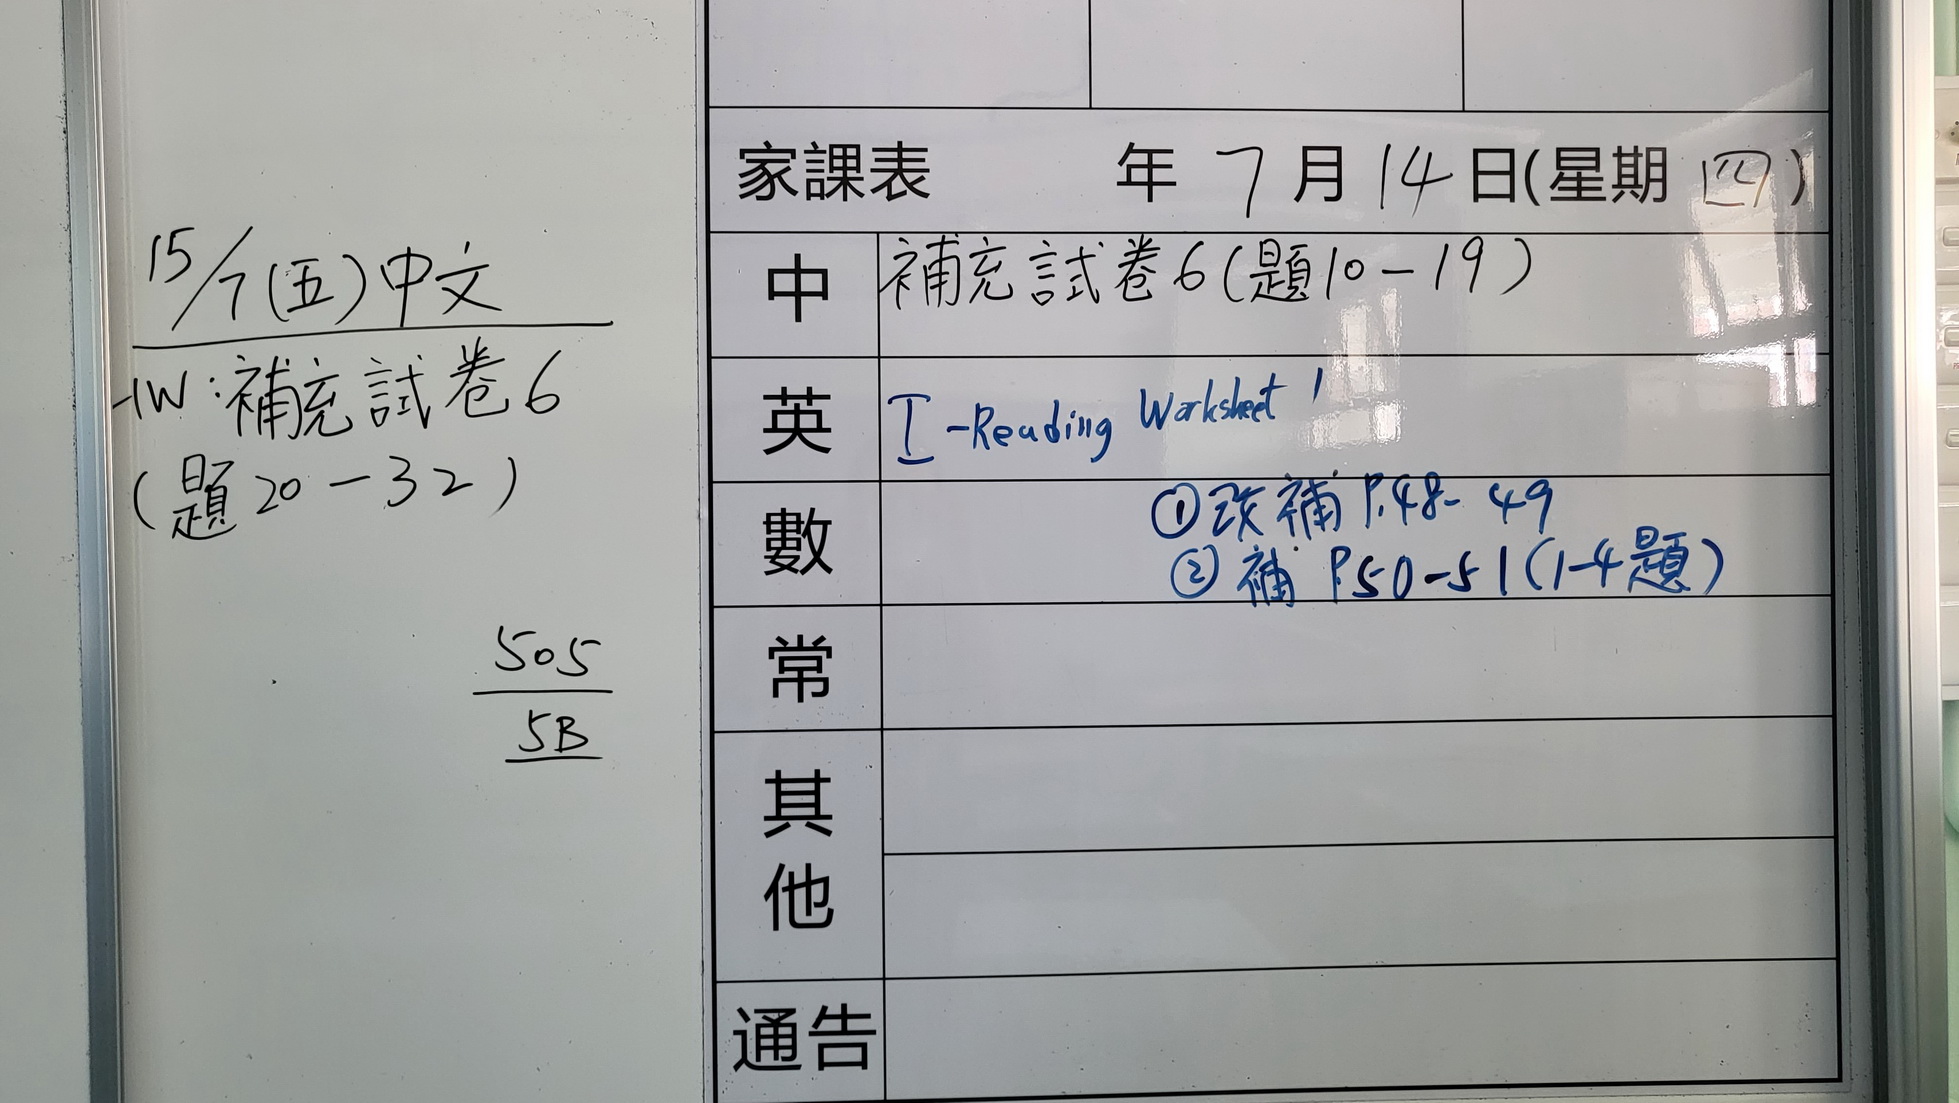 15/7(五)中文
HW:補充試卷6
(題20-32)
505
5B
家課表 年7月14日(星期四)
中 補充試卷6(題10-19)
英 I-Reading Worksheet 1
數 ①改補P.48-49
②補P.50-51(1-4題)
常
其他
通告